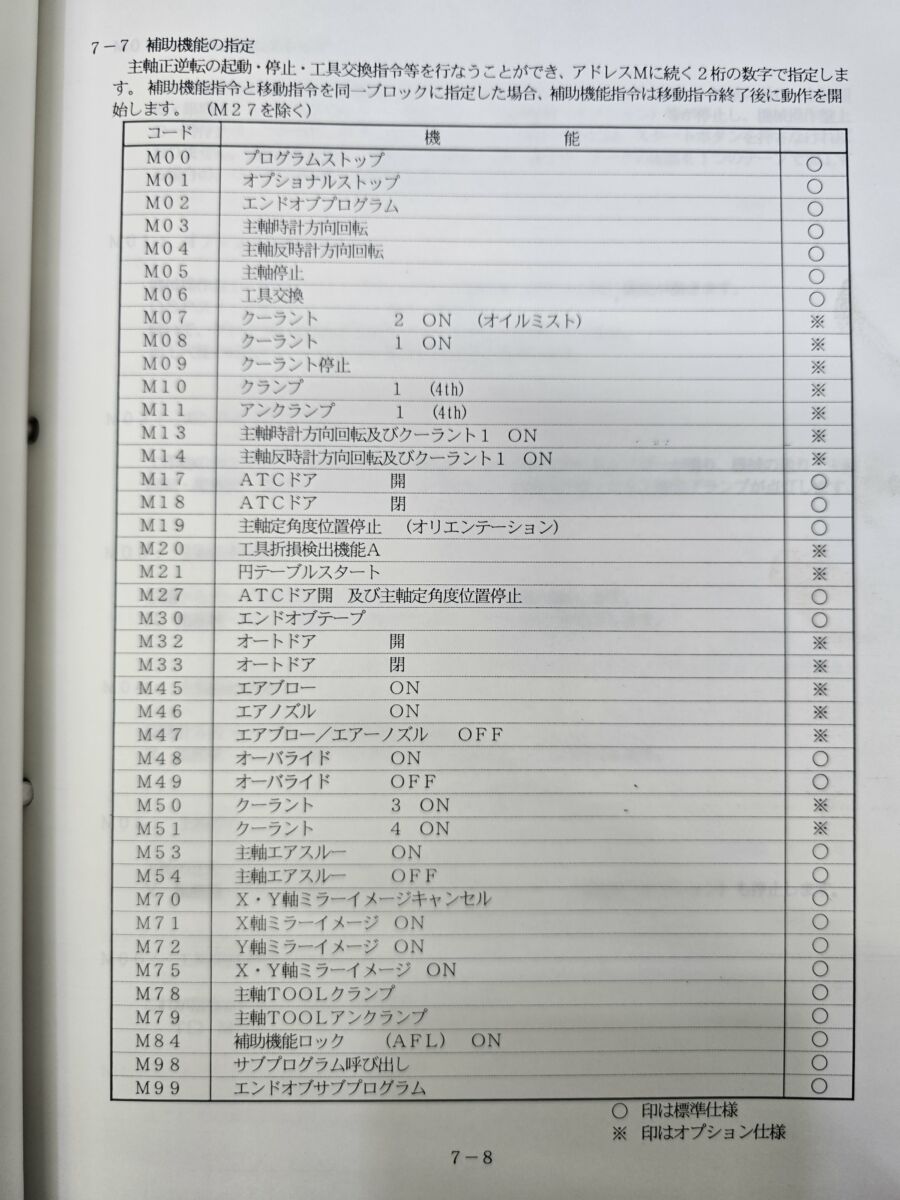 ７－７　補助機能の指定
主軸正逆転の起動・停止・工具交換指令等を行なうことができ、アドレスＭに続く２桁の数字で指定しま
す。 補助機能指令と移動指令を同一ブロックに指定した場合、補助機能指令は移動指令終了後に動作を開
始します。　（Ｍ２７を除く）
コード　機　能
Ｍ００　プログラムストップ　○
Ｍ０１　オプショナルストップ　○
Ｍ０２　エンドオブプログラム　○
Ｍ０３　主軸時計方向回転　○
Ｍ０４　主軸反時計方向回転　○
Ｍ０５　主軸停止　○
Ｍ０６　工具交換　○
Ｍ０７　クーラント　２　ON　（オイルミスト）　※
Ｍ０８　クーラント　１　ON　※
Ｍ０９　クーラント停止　※
Ｍ１０　クランプ　１　（4th）　※
Ｍ１１　アンクランプ　１　（4th）　※
Ｍ１３　主軸時計方向回転及びクーラント１　ON　※
Ｍ１４　主軸反時計方向回転及びクーラント１　ON　※
Ｍ１７　ＡＴＣドア　開　○
Ｍ１８　ＡＴＣドア　閉　○
Ｍ１９　主軸定角度位置停止　（オリエンテーション）　○
Ｍ２０　工具折損検出機能Ａ　※
Ｍ２１　円テーブルスタート　※
Ｍ２７　ＡＴＣドア開　及び主軸定角度位置停止　○
Ｍ３０　エンドオブテープ　○
Ｍ３２　オートドア　開　※
Ｍ３３　オートドア　閉　※
Ｍ４５　エアブロー　ON　※
Ｍ４６　エアノズル　ON　※
Ｍ４７　エアブロー／エアーノズル　ＯＦＦ　※
Ｍ４８　オーバライド　ON　○
Ｍ４９　オーバライド　ＯＦＦ　○
Ｍ５０　クーラント　３　ON　※
Ｍ５１　クーラント　４　ON　※
Ｍ５３　主軸エアスルー　ON　○
Ｍ５４　主軸エアスルー　ＯＦＦ　○
Ｍ７０　Ｘ・Ｙ軸ミラーイメージキャンセル　○
Ｍ７１　Ｘ軸ミラーイメージ　ON　○
Ｍ７２　Ｙ軸ミラーイメージ　ON　○
Ｍ７５　Ｘ・Ｙ軸ミラーイメージ　ON　○
Ｍ７８　主軸ＴＯＯＬクランプ　○
Ｍ７９　主軸ＴＯＯＬアンクランプ　○
Ｍ８４　補助機能ロック　（ＡＦＬ）　ON　○
Ｍ９８　サブプログラム呼び出し　○
Ｍ９９　エンドオブサブプログラム　○
○　印は標準仕様
※　印はオプション仕様
７－８